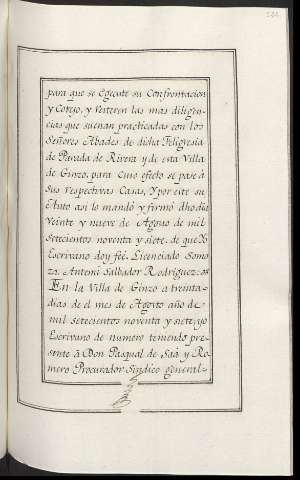 para que se Egecute su Confrontacion
y Cotejo, y Resteren las mas diligen-
cias que suenan practicadas con los
Señores Abades de dicha Feligresia
de Parada de Rivera y de esta Villa
de Ginzo, para cuio efecto se pase à
sus respectivas Casas, Y por este su
Auto asi lo mandó y firmó dho dia
Veinte y nueve de Agosto de mil
setecientos noventa y siete. de que Yo
Escrivano doy feè. Licenciado Somo
za. Antemi Salbador Rodriguez. os
En la Villa de Ginzo a treinta
dias de el mes de Agosto año de
mil setecientos noventa y siete, yo
Escrivano de numero teniendo pre
sente à Don Pasqual de Saà y Ro
mero Procurador Sindico general-